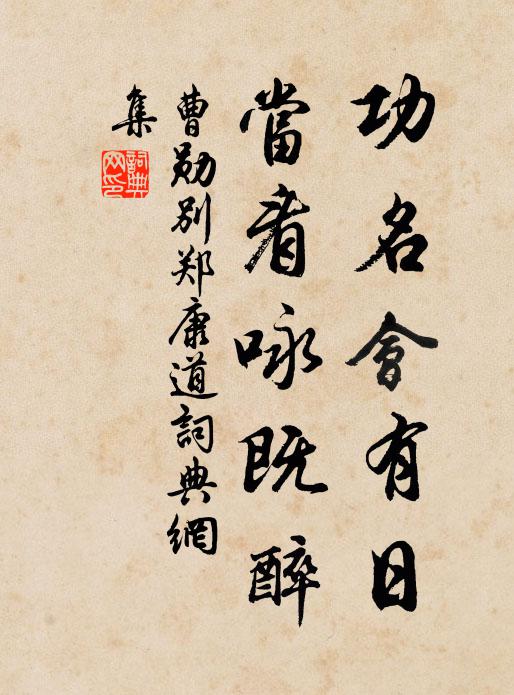 功名會有日
當看咏既醉
曹勋别郑康道詞典網
集
詞典
网印